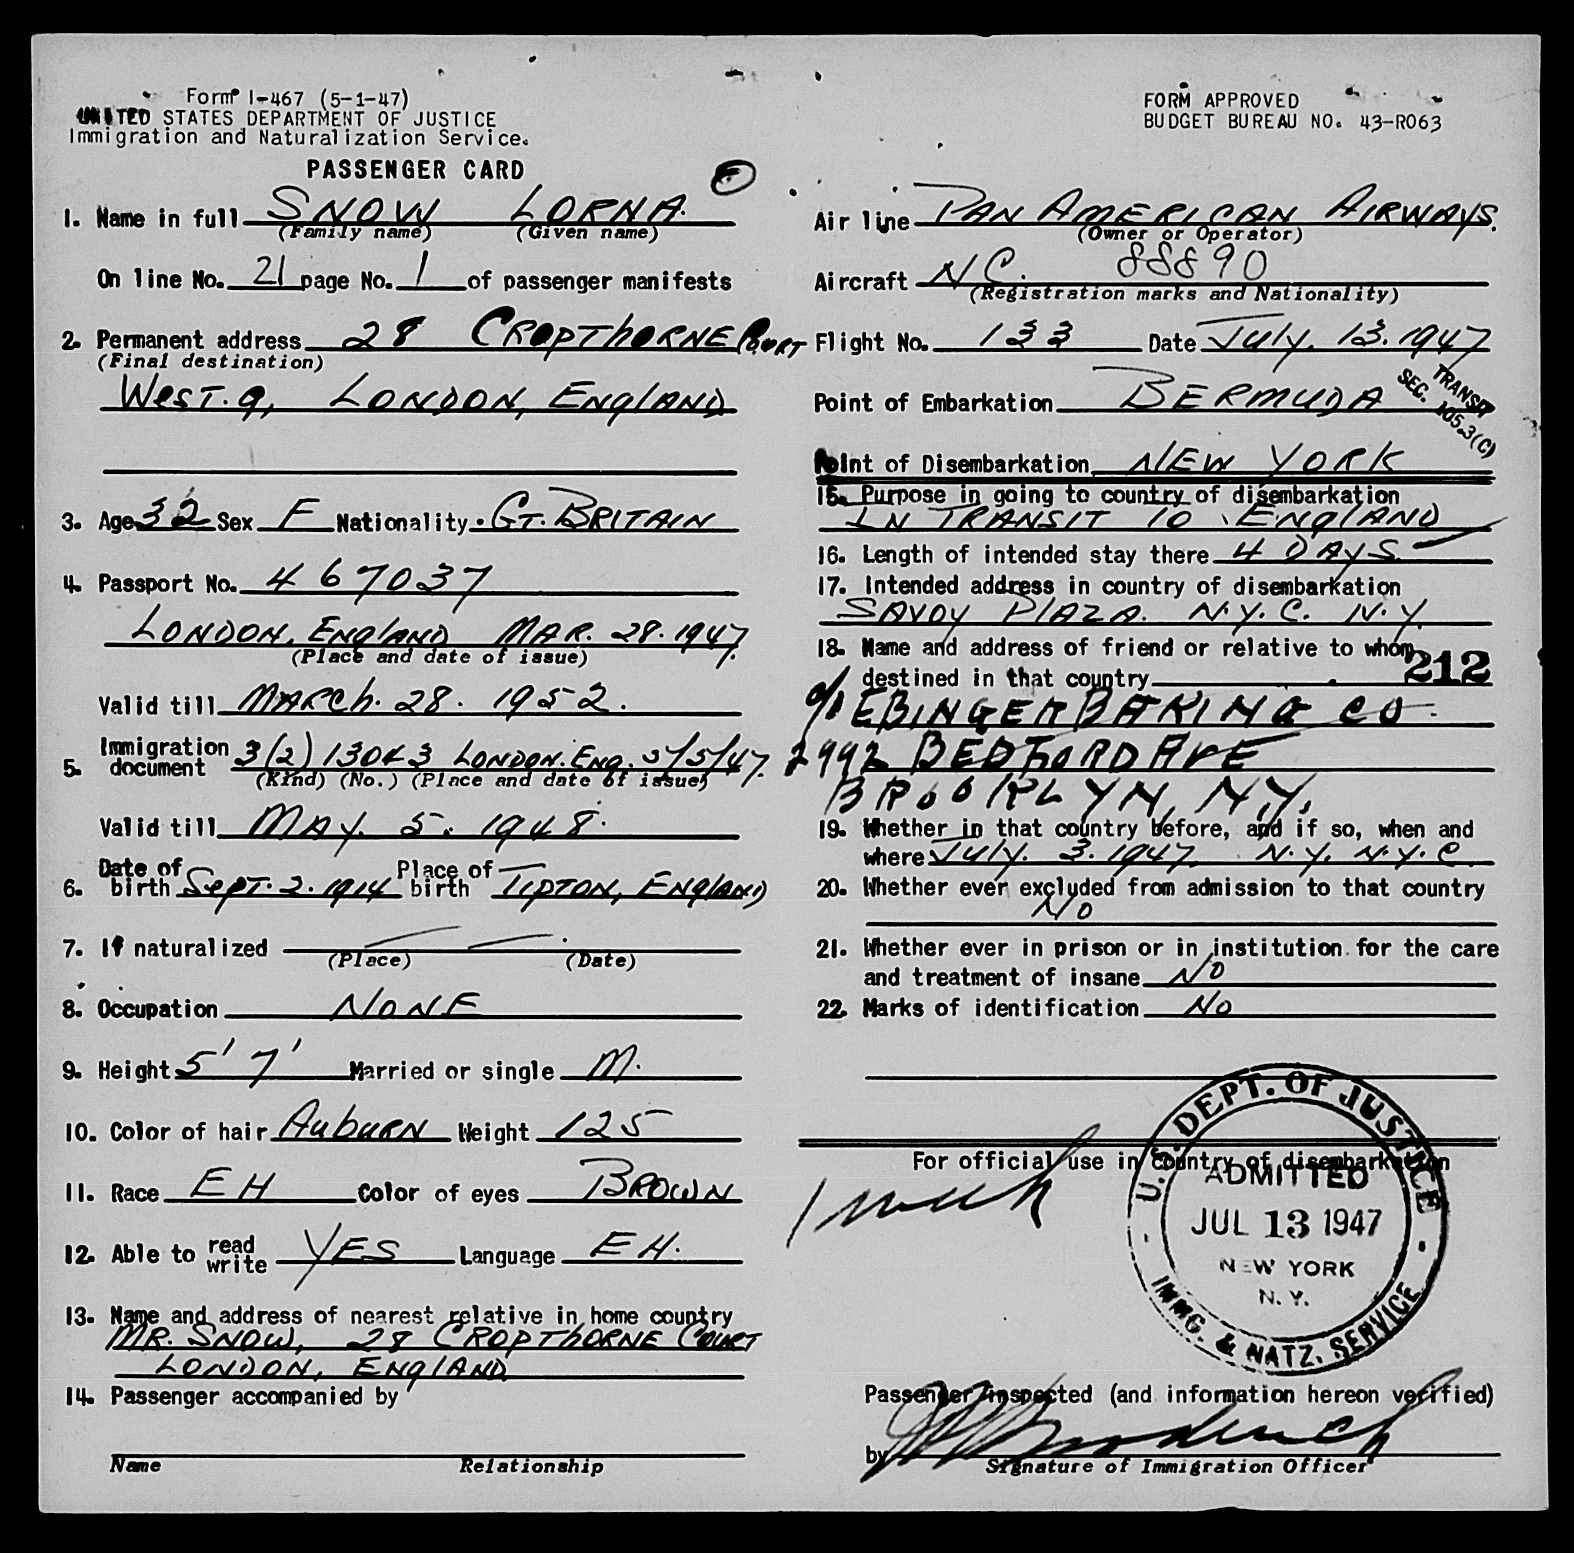 Form I-467 (5-1-47)
UNITED STATES DEPARTMENT OF JUSTICE
Immigration and Naturalization Service.
PASSENGER CARD
1. Name in full SNOW LORNA.
(Family name) (Given name)
On line No. 21 page No. 1 of passenger manifests
2. Permanent address 28 CROPTHORNE COURT
(Final destination)
WEST. 9, LONDON, ENGLAND
3. Age 32 Sex F Nationality GT. BRITAIN
4. Passport No. 467037
LONDON, ENGLAND MAR. 28. 1947.
(Place and date of issue)
Valid till MARCH. 28. 1952.
5. Immigration document 3(2) 13043 LONDON. ENG. 5/5/47.
(Kind) (No.) (Place and date of issue)
Valid till MAY. 5. 1948.
6. Date of birth SEPT. 2. 1914 Place of birth TIPTON, ENGLAND
7. If naturalized
(Place) (Date)
8. Occupation NONE
9. Height 5' 7' Married or single M.
10. Color of hair AUBURN Weight 125
11. Race EH Color of eyes BROWN
12. Able to read write YES Language EH.
13. Name and address of nearest relative in home country
MR. SNOW, 28 CROPTHORNE COURT
LONDON, ENGLAND
14. Passenger accompanied by
Name Relationship
FORM APPROVED
BUDGET BUREAU NO. 43-R063
Air line PAN AMERICAN AIRWAYS.
(Owner or Operator)
Aircraft NC. 88890
(Registration marks and Nationality)
Flight No. 133 Date JULY. 13. 1947
Point of Embarkation BERMUDA
TRANSIT
SEC. 105.3(C)
Point of Disembarkation NEW YORK
15. Purpose in going to country of disembarkation
IN TRANSIT TO ENGLAND
16. Length of intended stay there 4 DAYS
17. Intended address in country of disembarkation
SAVOY PLAZA. N.Y.C. N.Y.
18. Name and address of friend or relative to whom
destined in that country 212
c/o EBINGER BAKING CO.
2992 BEDFORD AVE
BROOKLYN, N.Y.
19. Whether in that country before, and if so, when and
where JULY. 3. 1947. N.Y. N.Y.C.
20. Whether ever excluded from admission to that country
NO
21. Whether ever in prison or in institution for the care
and treatment of insane NO
22. Marks of identification NO
For official use in country of disembarkation
1 week
U.S. DEPT. OF JUSTICE
ADMITTED
JUL 13 1947
NEW YORK
N.Y.
IMMG. & NATZ. SERVICE
Passenger inspected (and information hereon verified)
by
Signature of Immigration Officer